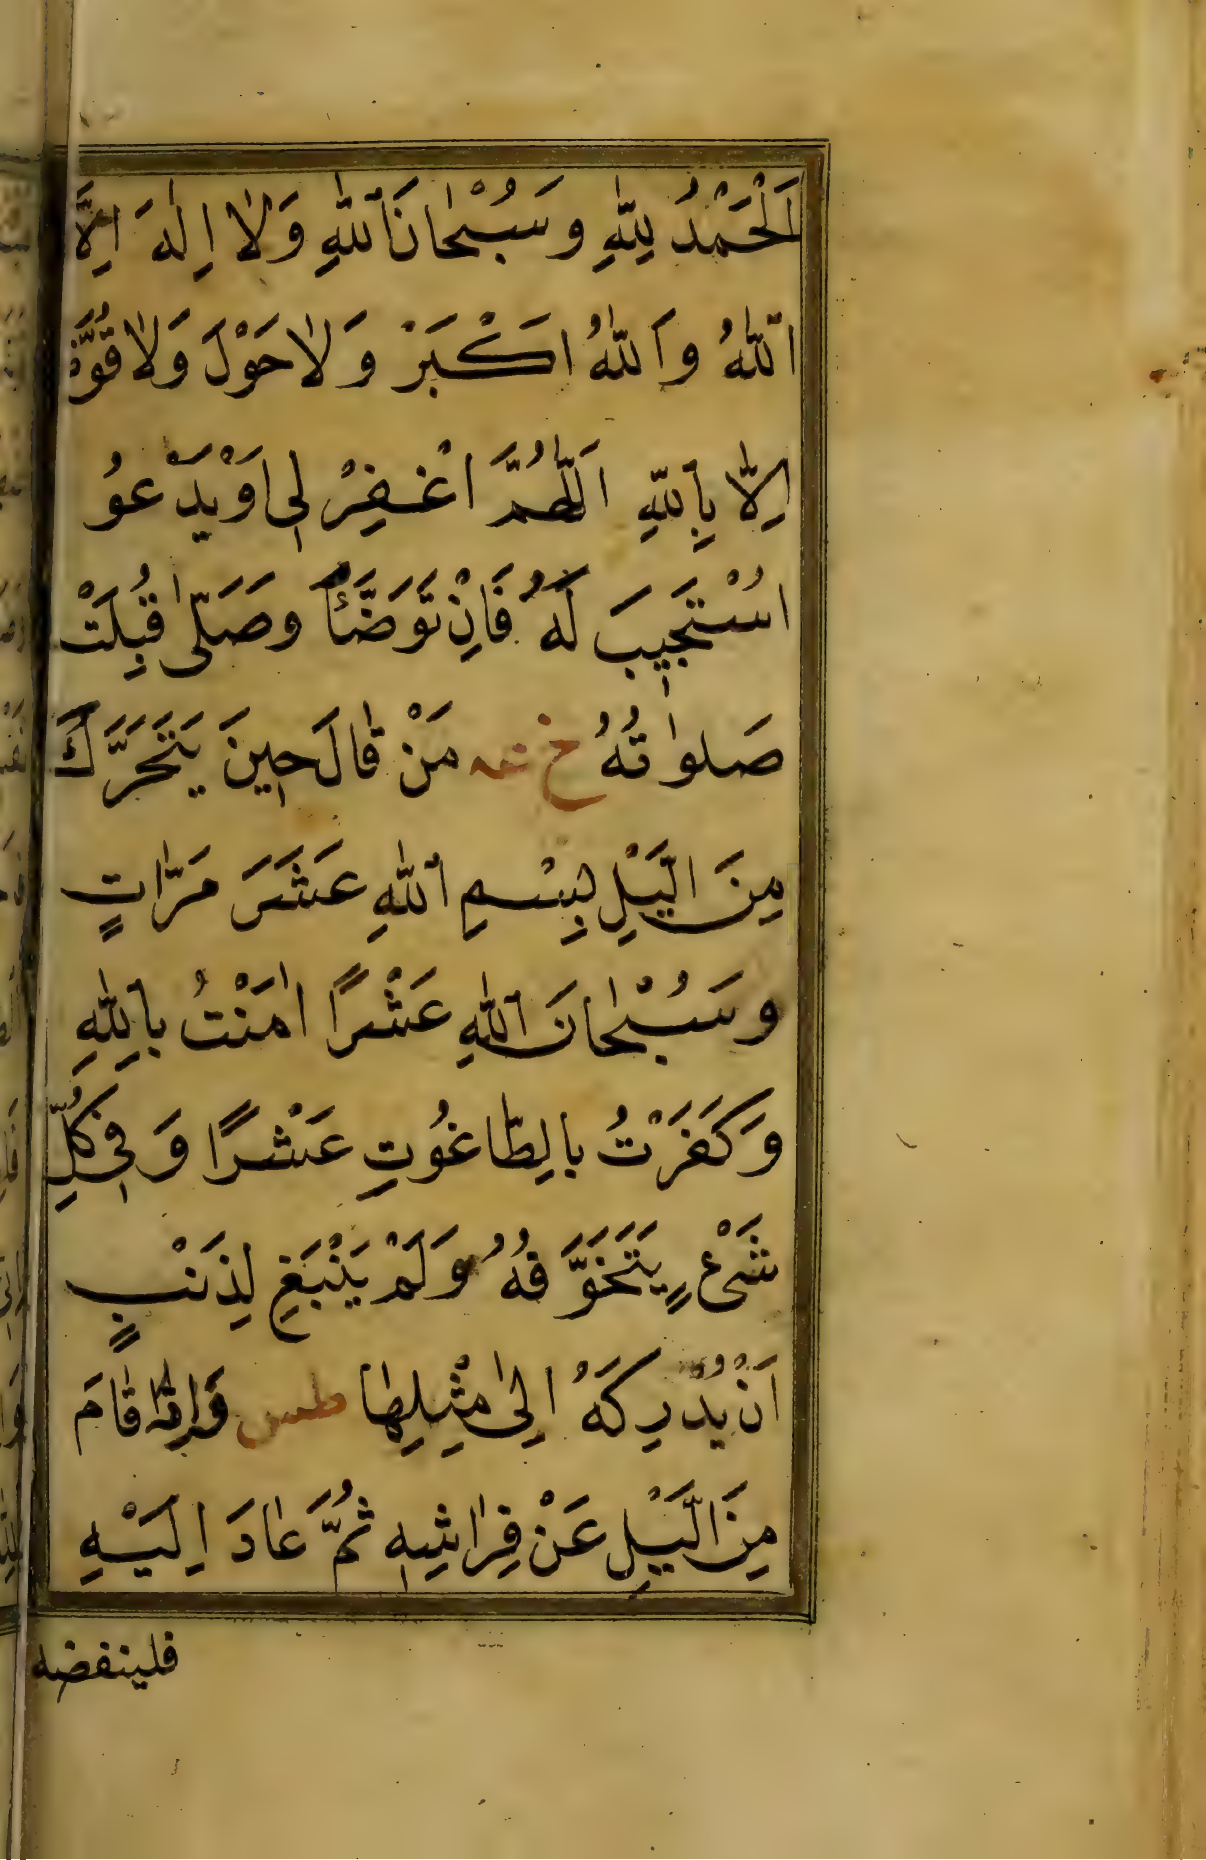 اَلْحَمْدُ لِلّٰهِ وَسُبْحَانَ اللّٰهِ وَلَا اِلٰهَ اِلَّا
اللّٰهُ وَاللّٰهُ اَكْبَرْ وَلَا حَوْلَ وَلَا قُوَّةَ
اِلَّا بِاللّٰهِ اَللّٰهُمَّ اغْفِرْ لِي اَوْ يَدْعُو
اسْتُجِيبَ لَهُ فَاِنْ تَوَضَّأَ وَصَلّٰى قُبِلَتْ
صَلٰوتُهُ خ عه مَنْ قَالَ حِينَ يَتَحَرَّكُ
مِنَ الَّيْلِ بِسْمِ اللّٰهِ عَشَرَ مَرَّاتٍ
وَسُبْحَانَ اللّٰهِ عَشْرًا اٰمَنْتُ بِاللّٰهِ
وَكَفَرْتُ بِالطَّاغُوتِ عَشْرًا وَفِي كُلَّ
شَيْءٍ يَتَخَوَّفُهُ وَلَمْ يَنْبَغِ لِذَنْبٍ
اَنْ يُدْرِكَهُ اِلٰى مِثْلِهَا طس وَاِذَا قَامَ
مِنَ الَّيْلِ عَنْ فِرَاشِهِ ثُمَّ عَادَ اِلَيْهِ
فلينفضه